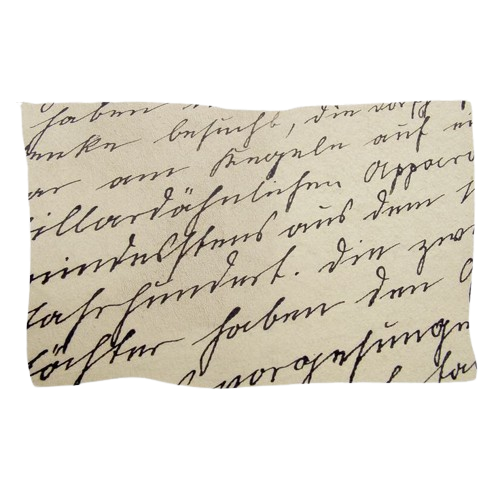 haben
enke besucht, die
ar am Kegeln auf ei
illardähnlichen Appara
mindestens aus dem
Jahrhundert. Die zwe
öchter haben den
vorgesunge